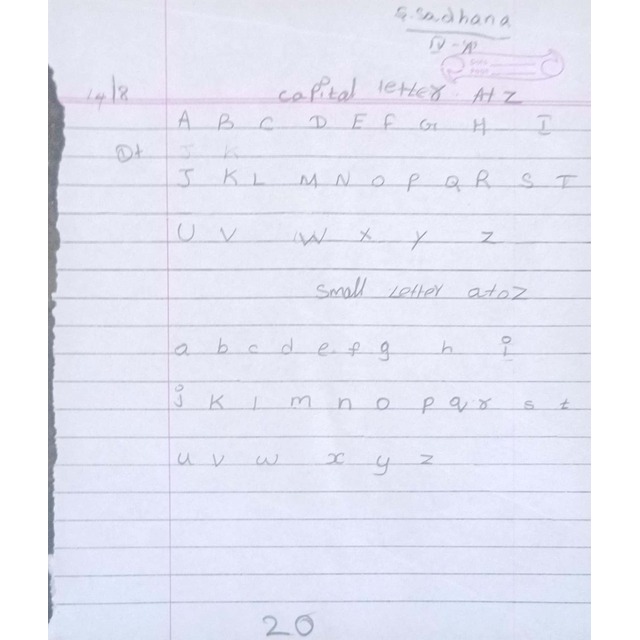 S. Sadhana
IV - 'A'
14/8
capital letter A to Z
A B C D E F G H I
J K
J K L M N O P Q R S T
U V W X Y Z
small letter a to z
a b c d e f g h i
j k l m n o p q r s t
u v w x y z
20